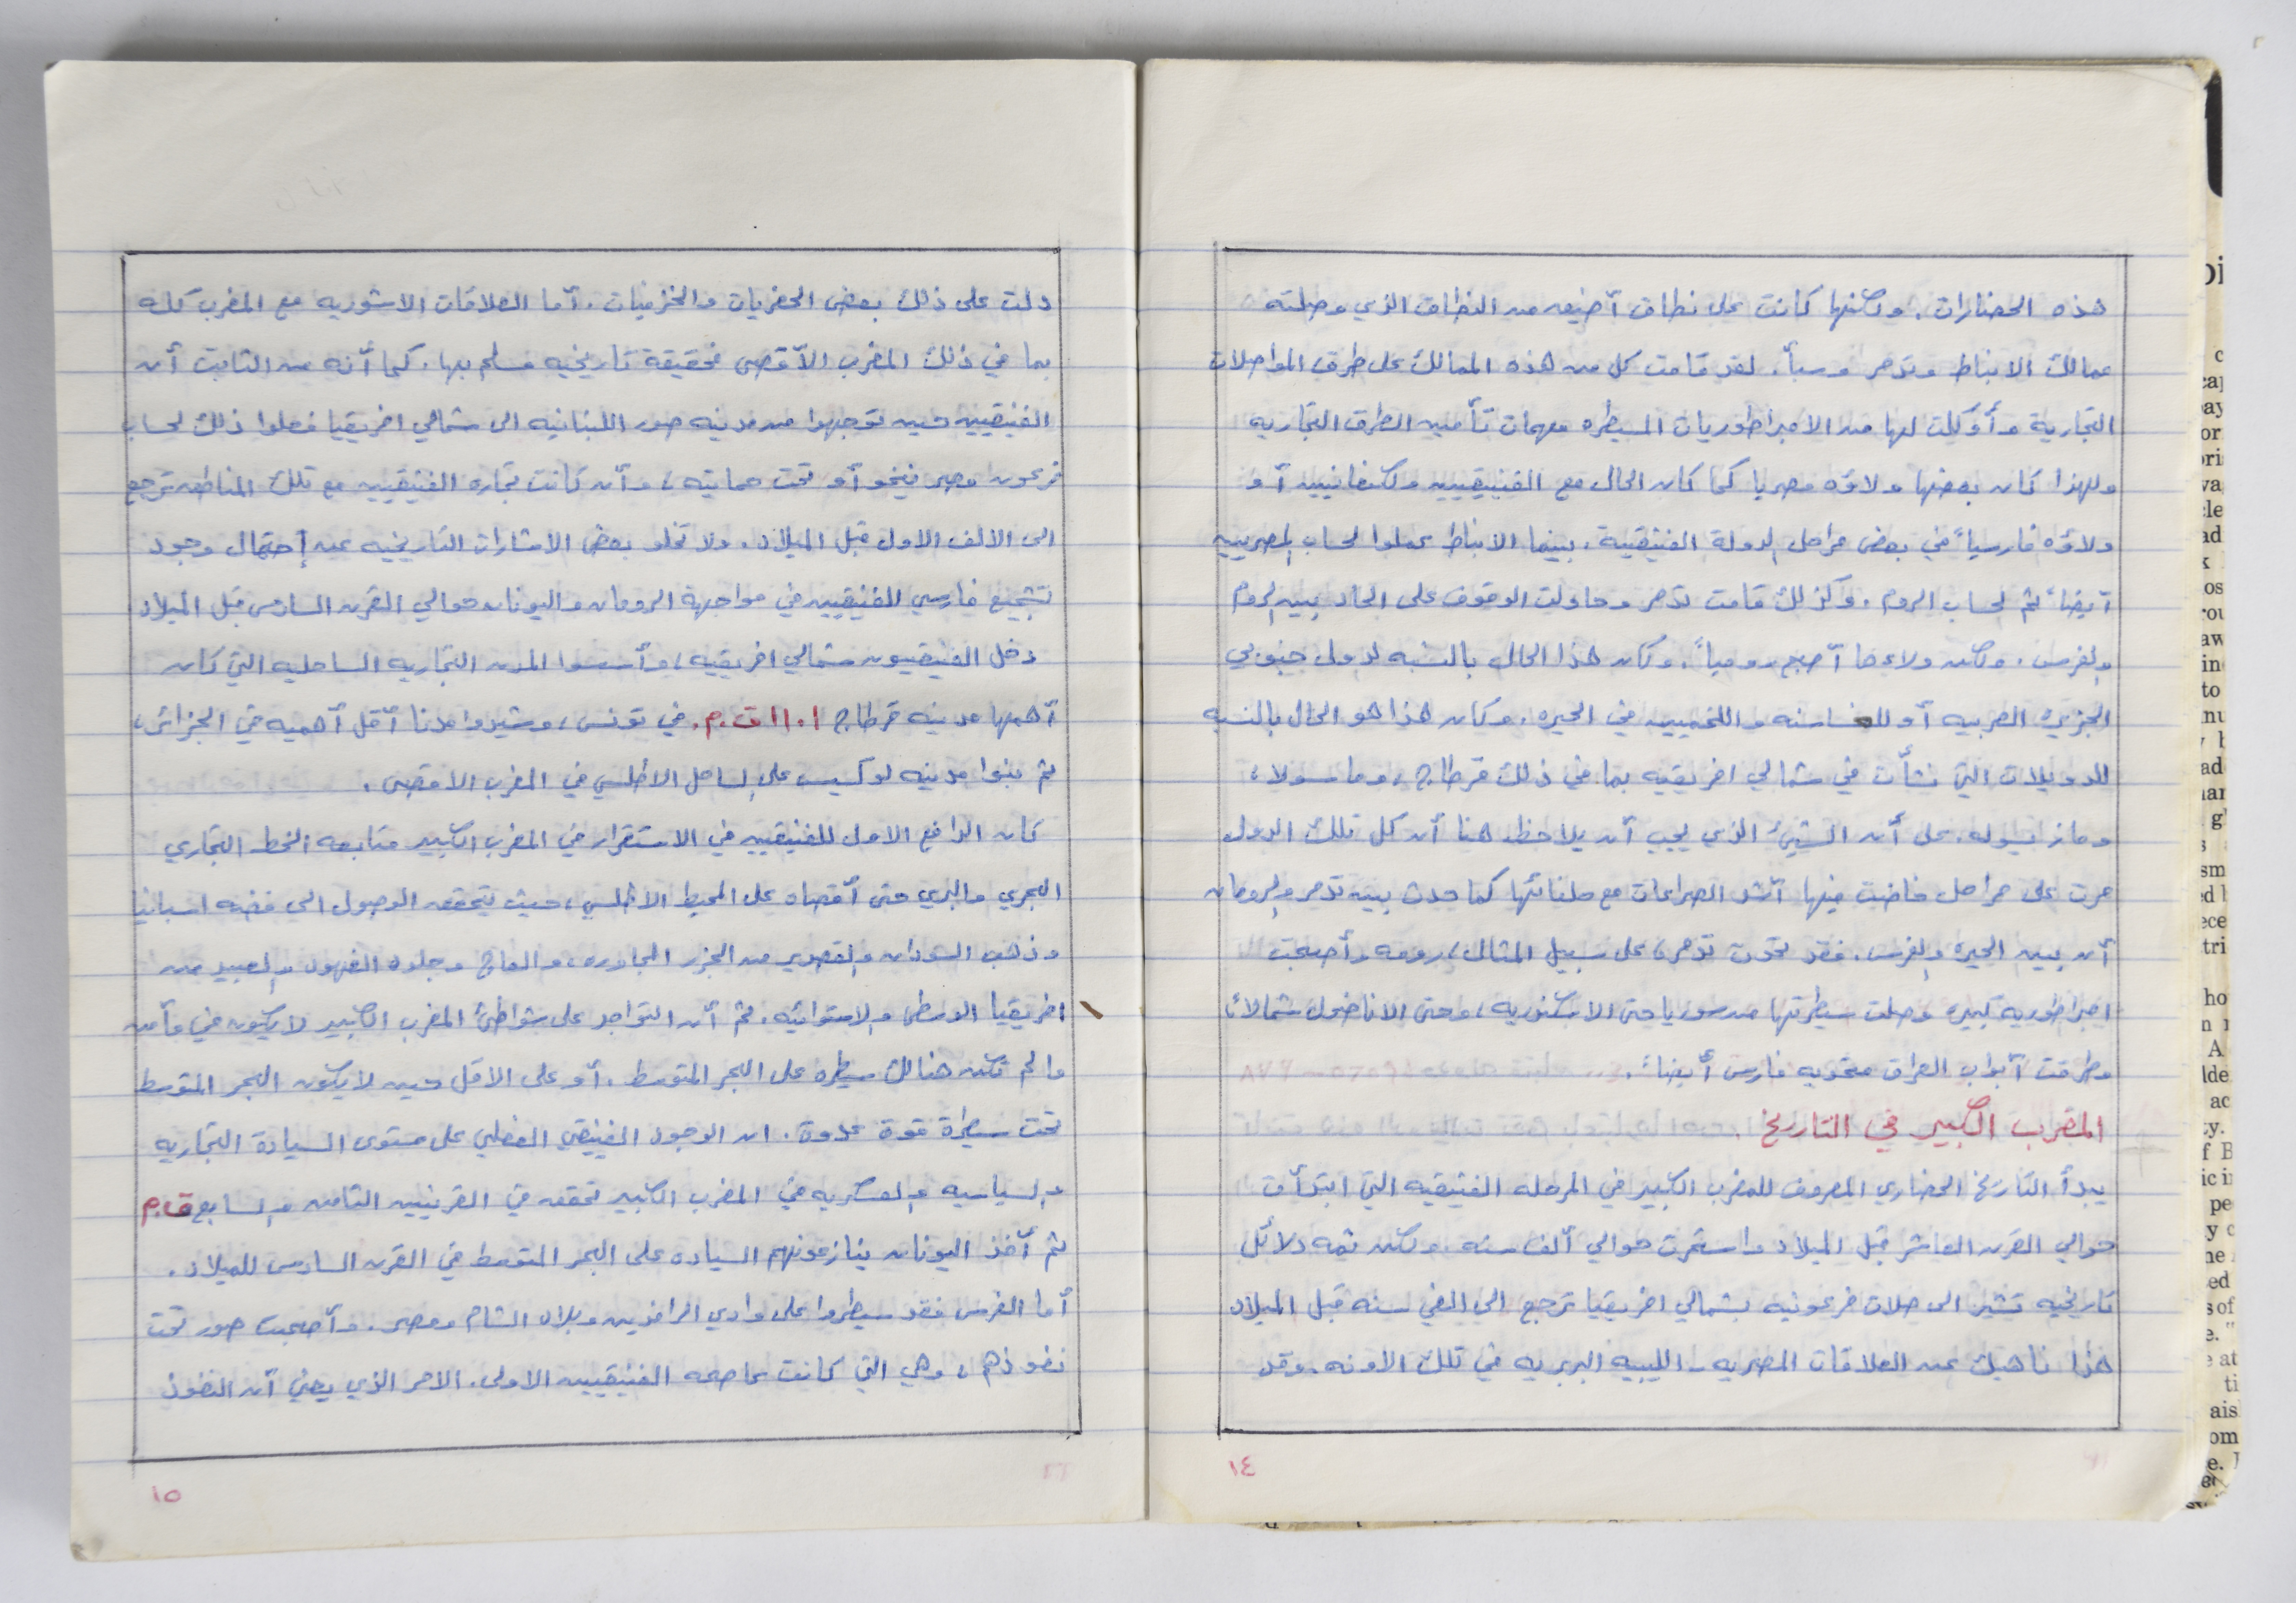 هذه الحضارات. ولكنها كانت على نطاق أضيق من النطاق الذي وصلته
ممالك الانباط وتدمر وسبأ. لقد قامت كل من هذه الممالك على طرق المواصلات
التجارية وأوكلت لها من الامبراطوريات المسيطره مهمات تأمين الطرق التجاريه
ولهذا كان بعضها ولاؤه مصريا كما كان الحال مع الفنيقيين ولكنعانيين أو
ولاؤه فارسياً في بعض مراحل الدولة الفنيقية. بينما الانباط عملوا لحساب المصريين
أيضاً ثم لحساب الروم. وكذلك قامت تدمر وحاولت الوقوف على الحياد بين الروم
والفرس. ولكن ولاءها أصبح رومياً. وكان هذا الحال بالنسبه لدول جنوبي
الجزيره العربيه أو للغساسنه واللخميين في الحيره. وكان هذا هو الحال بالنسبه
للدويلات التي نشأت في شمالي افريقيه بما في ذلك قرطاج، وماسولا،
ومازيسوله. على أن الشيئ الذي يجب أن يلاحظ هنا أن كل تلك الدول
مرت على مراحل خاضت فيها أشد الصراعات مع حلفائها كما حدث بين تدمر والرومان
أن بين الحيره والفرس. فقد تحدت تدمر، على سبيل المثال، رومه وأصبحت
امبراطوريه كبيره وصلت سيطرتها من سوريا حتى الاسكندريه، وحتى الاناضول شمالاً،
وطرقت أبواب العراق متحديه فارس أيضاً.
المغرب الكبير في التاريخ
يبدأ التاريخ الحضاري المعروف للمغرب الكبير في المرحله الفنيقيه التي ابتدأت
حوالي القرن العاشر قبل الميلاد واستمرت حوالي ألف سنه. ولكن ثمه دلائل
تاريخيه تشير الى صلات فرعونيه بشمالي افريقيا ترجع الى الفي سنه قبل الميلاد
هذا ناهيك عن العلاقات المصريه - الليبيه البربريه في تلك الاونه. وقد
١٤
دلت على ذلك بعض الحفريات والخزفيات. أما العلاقات الاشوريه مع المغرب كله
بما في ذلك المغرب الأقصى فحقيقة تاريخيه مسلم بها. كما أنه من الثابت أن
الفنيقيين حين توجهوا من مدينه صور اللبنانيه الى شمالي افريقيا فعلوا ذلك لحساب
فرعون مصر نيخو أو تحت حمايته، وأن كانت تجاره الفنيقيين مع تلك المناطق ترجع
الى الالف الاول قبل الميلاد. ولا تخلو بعض الاشارات التاريخيه عن إحتمال وجود
تشجيع فارسي للفنيقيين في مواجهة الرومان واليونان حوالي القرن السادس قبل الميلاد
دخل الفنيقيون شمالي افريقيه، وأسسوا المدن التجاريه الساحليه التي كان
أهمها مدينه قرطاج ١١٠١ ق.م. في تونس، وشيدوا مدنا أقل أهميه في الجزائر،
ثم بنوا مدينه لوكسيس على الساحل الاطلسي في المغرب الاقصى.
كان الدافع الاول للفنيقيين في الاستقرار في المغرب الكبير متابعه الخط التجاري
البحري والبري حتى أقصاه على المحيط الاطلسي، حيث يتحقق الوصول الى فضه اسبانيا
وذهب السودان والقصدير من الجزر المجاوره، والعاج وجلود الفهود والعبيد من
افريقيا الوسطى والاستوائيه. ثم أن التواجد على شواطئ المغرب الكبير لا يكون في مأمن
ما لم تكن هنالك سيطره على البحر المتوسط. أو على الاقل حين لا يكون البحر المتوسط
تحت سيطرة قوة عدوة. ان الوجود الفينيقي الفعلي على مستوى السيادة التجاريه
والسياسيه والعسكريه في المغرب الكبير تحقق في القرنيين الثامن والسابع ق.م
ثم أخذ اليونان ينازعونهم السياده على البحر المتوسط في القرن السادس للميلاد.
أما الفرس فقد سيطروا على وادي الرافدين وبلاد الشام ومصر. وأصبحت صور تحت
نفوذهم، وهي التي كانت عاصمه الفنيقيين الاولى. الامر الذي يعني أن النفوذ
١٥